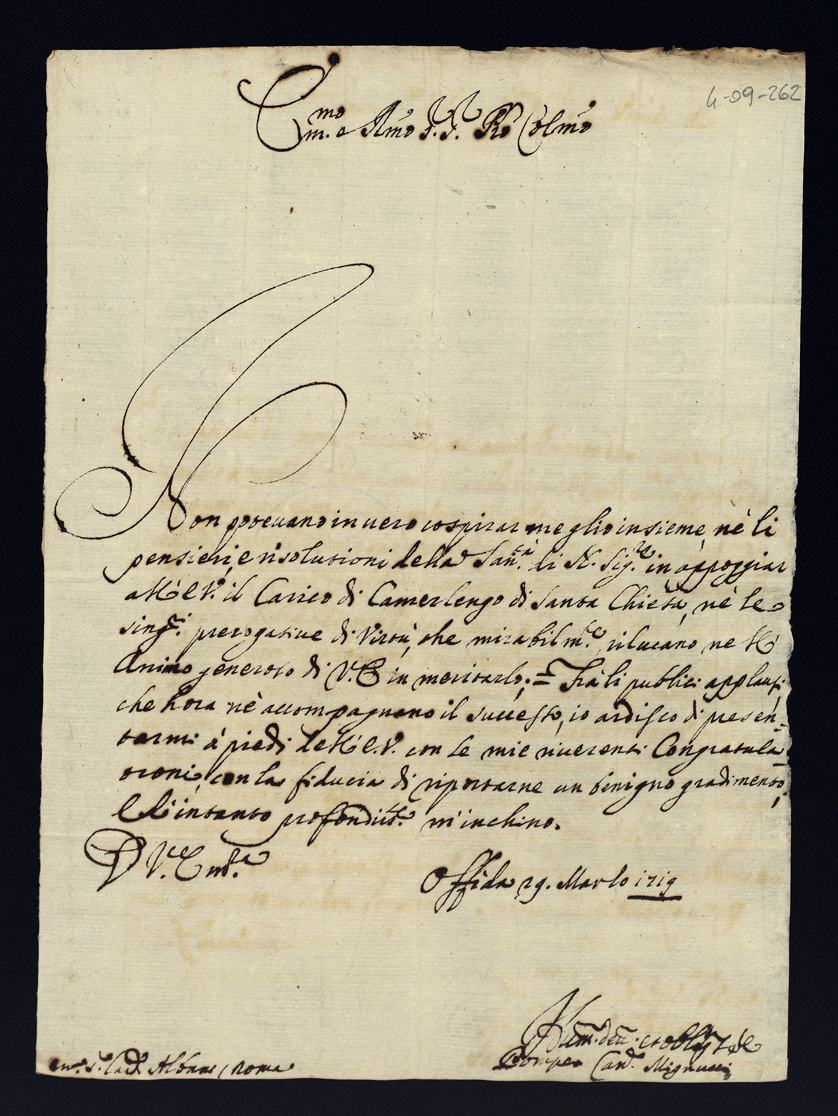 4-09-262
Em.mo e Rmo S.r S.r Pro Colmo
Non potevano in vero cospirar meglio insieme, nè li
pensieri, e risolutioni della San.tà di N. Sig.re in appoggiar
all'E.V. il Carico di Camerlengo di Santa Chiesa, nè le
sing.ri prerogative di Virtù, che mirabilm.te rilucano nell'
Animo generoso di V.E. in meritarlo; = Frà li publici applausi,
che hora nè accompagnano il successo, io ardisco di presen=
tarmi à piedi dell'E.V. con le mie riverenti Congratula=
tioni, con la fiducia di riportarne un benigno gradimento;
E l'intanto profondis.te m'inchino.
D V.E. Em.a
Offida 29. Marzo 1719
Em.o S.r Card. Albani Roma
Hum.o dev.o et obligat
Pompeo Can.co Mignucci